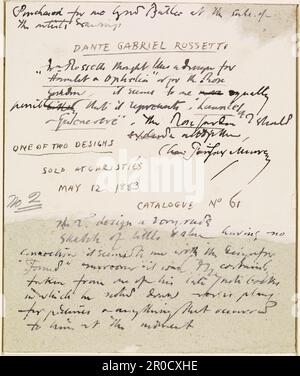 Purchased for me by Lord Butler at the sale of
the artist's drawings
DANTE GABRIEL ROSSETTI
"Mr Rossetti thought this a design for
Hamlet & Ophelia" or for the Rose
garden, it seems to me equally
possible that it represents "Launcelot
& Guinevere". The Rose garden I should
exclude altogether
Chas Fairfax Murray
ONE OF TWO DESIGNS
SOLD AT CHRISTIE'S
MAY 12 1883
CATALOGUE No 61
No 2
No 2. design a very rude
sketch of little value having no
connection it seems to me with the design for
"Found" moreover it was certainly
taken from one of his late note books
in which he noted down stories plans
for pictures or anything that occurred
to him at the moment
alamy
Image ID: 2R0CXHE
www.alamy.com